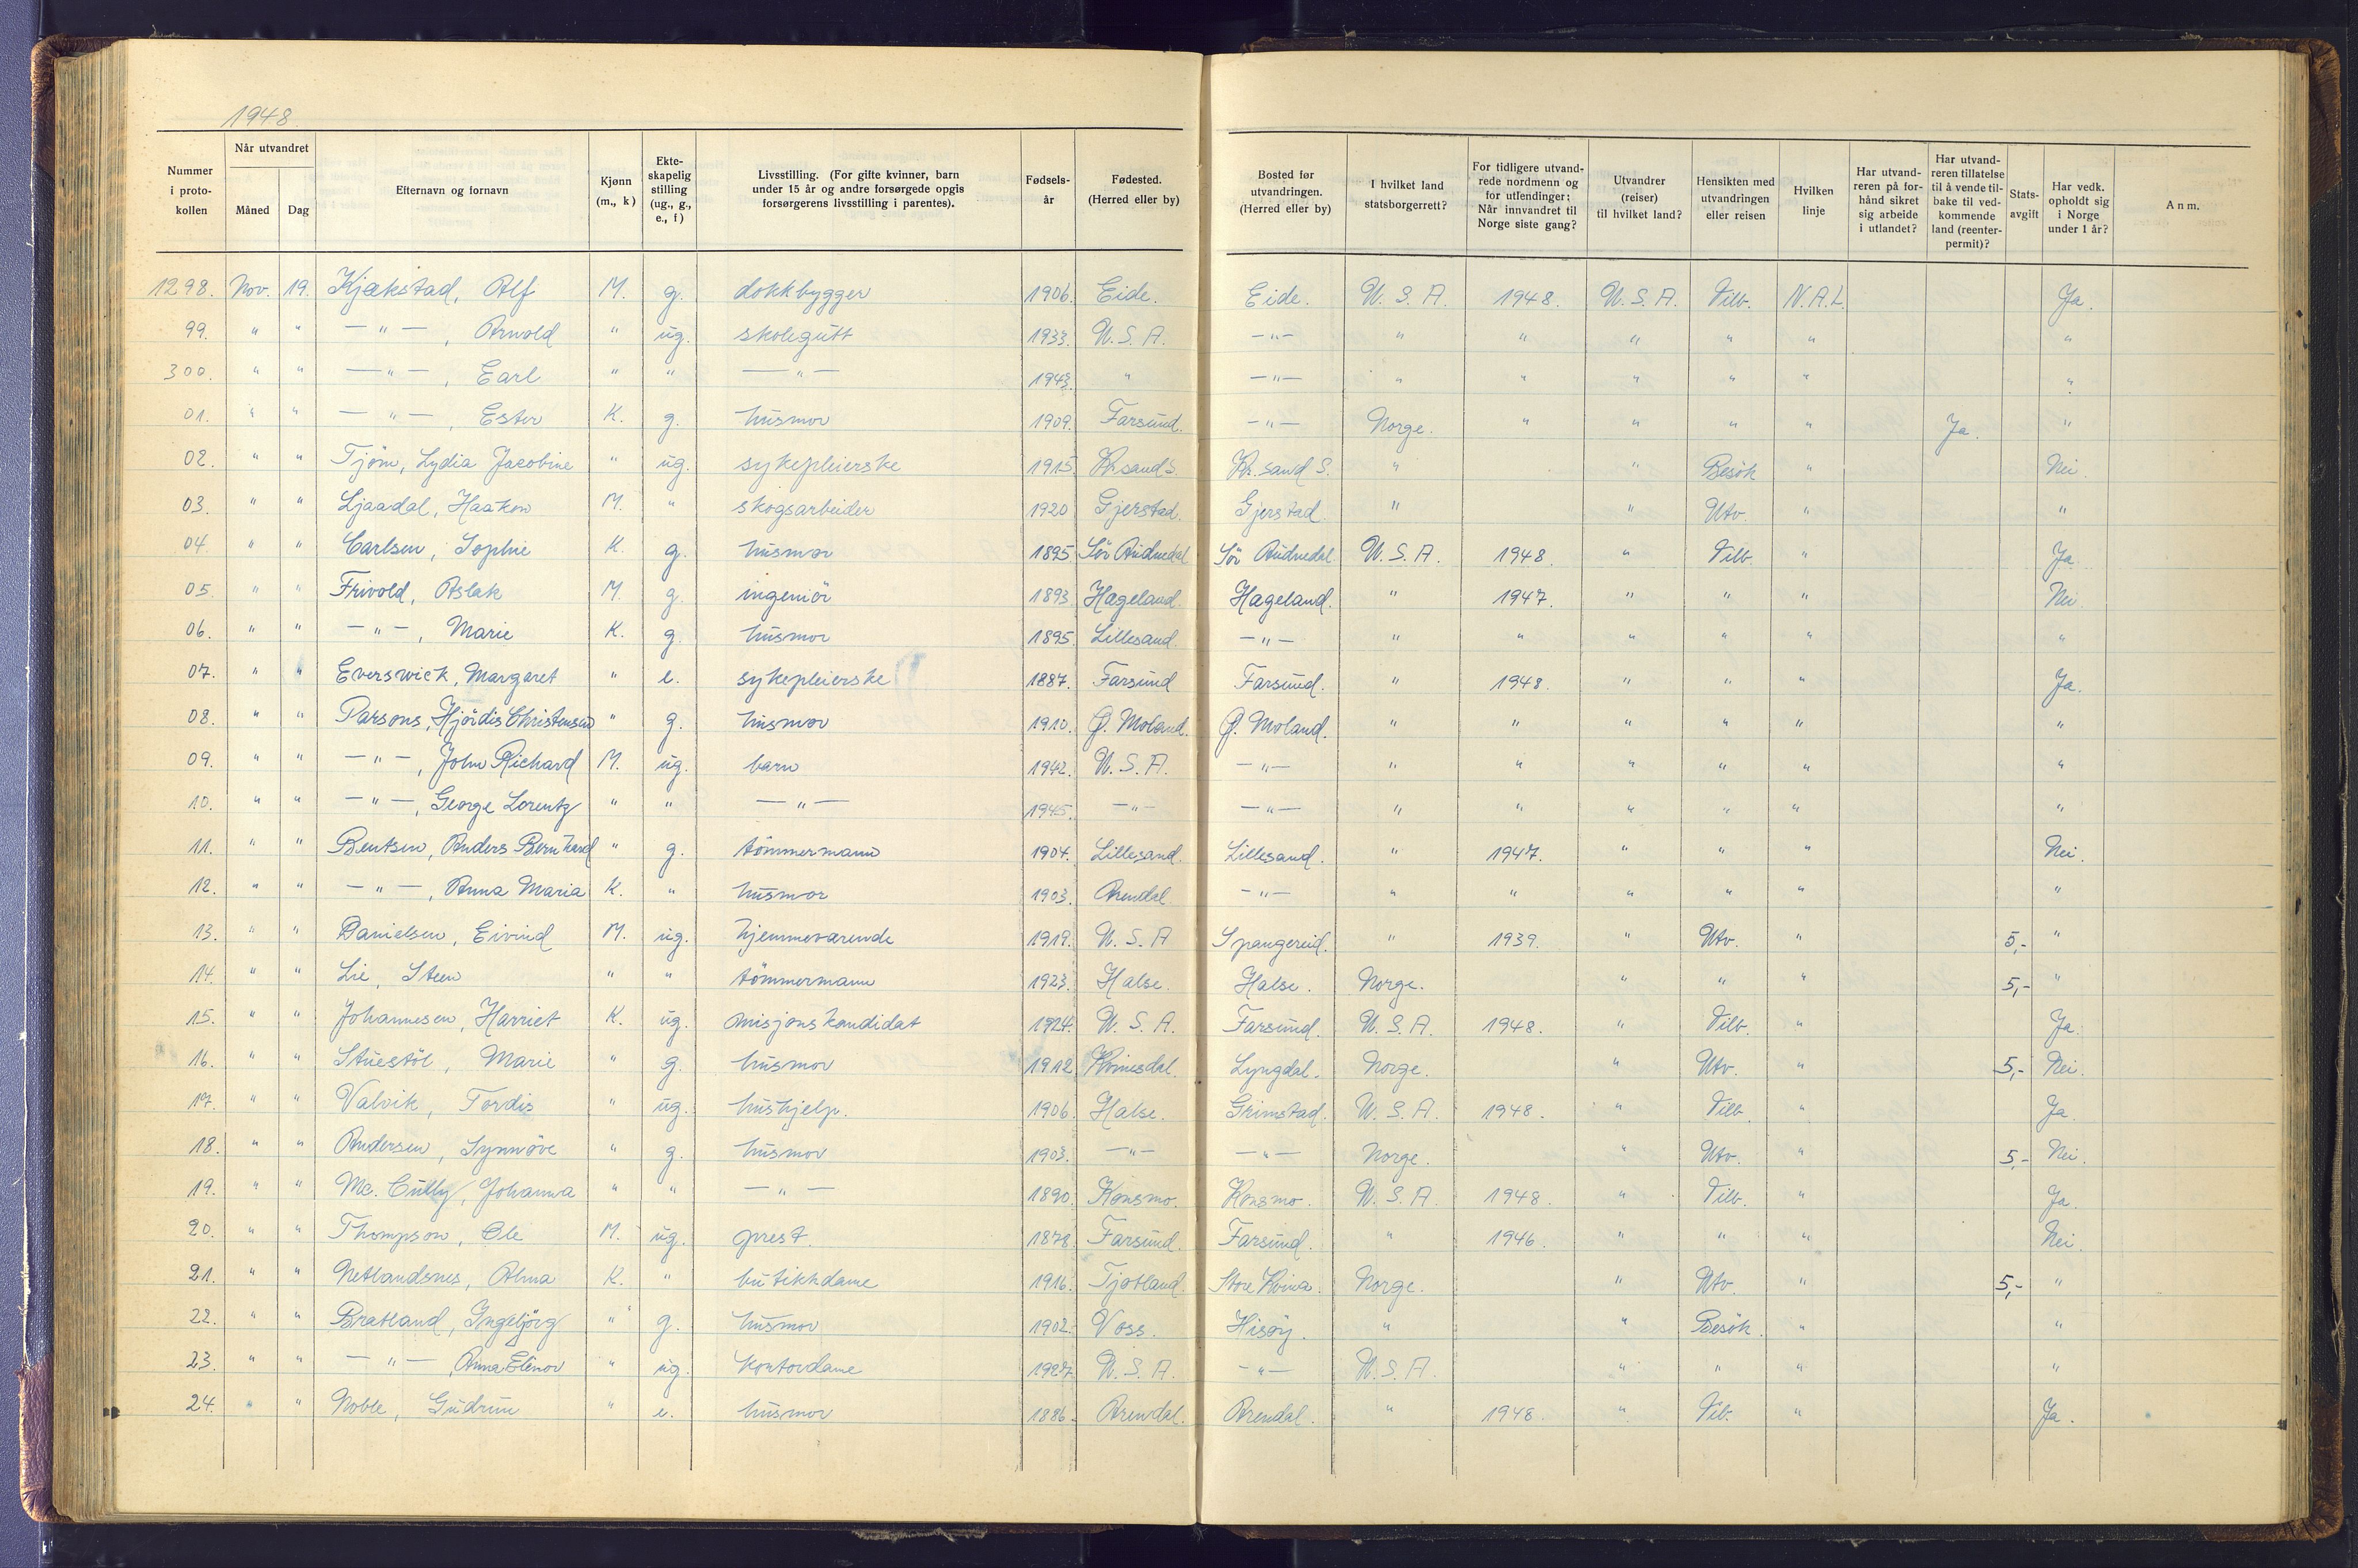 1948.
Nummer i protokollen | Når utvandret Måned | Dag | Efternavn og fornavn | Kjønn (m., k) | Ekteskapelig stilling (ug., g., e., f) | Livsstilling. (For gifte kvinner, barn under 15 år og andre forsørgede opgis forsørgerens livsstilling i parentes). | Fødselsår | Fødested. (Herred eller by) | Bosted før utvandringen. (Herred eller by) | I hvilket land statsborgerrett? | For tidligere utvandrede nordmenn og for utlendinger: Når innvandret til Norge siste gang? | Utvandrer (reiser) til hvilket land? | Hensikten med utvandringen eller reisen | Hvilken linje | Har utvandreren på forhånd sikret sig arbeide i utlandet? | Har utvandreren tillatelse til å vende tilbake til vedkommende land (reenterpermit)? | Statsavgift | Har vedk. opholdt sig i Norge under 1 år? | Anm.
1298. Nov. 19. Kjækstad, Alf M. g. dokkbygger 1906. Eide. Eide. U.S.A. 1948. U.S.A. Tilb. N.A.L. Ja.
99. " " —"—, Arnold " ug. skolegutt 1933. U.S.A. —"— " " " " " "
300. " " —"—, Earl " " —"— 1943. " —"— " " " " " "
01. " " —"—, Ester K. g. husmor 1909. Farsund. —"— Norge. " " " " Ja. "
02. " " Tjøm, Lydia Jacobine " ug. sykepleierske 1915. Kr.sand S. Kr.sand S. " " Besök " Nei.
03. " " Ljaadal, Haakon M. " skogsarbeider 1920 Gjerstad. Gjerstad. " " Utv. " "
04. " " Carlsen, Sophie K. g. husmor 1895 Sör Audnedal Sör Audnedal U.S.A. 1948. " Tilb. " Ja.
05. " " Frivold, Aslak M. g. ingeniör 1893 Hægeland. Hægeland. " 1947. " " " Nei.
06. " " —"—, Marie K. g. husmor 1895 Lillesand. —"— " " " " " "
07. " " Everswick, Margaret " e. sykepleierske 1887. Farsund Farsund. " 1948. " " " Ja.
08. " " Parsons, Hjördis Christensen " g. husmor 1910. Ø. Moland. Ø. Moland. " " " " " "
09. " " —"—, John Richard M. ug. barn 1942. U.S.A. —"— " " " " " "
10. " " —"—, George Lorentz " " —"— 1945. —"— —"— " " " " " "
11. " " Bentsen, Anders Bernhard " g. tömmermann 1904. Lillesand. Lillesand. " 1947. " " " Nei.
12. " " —"—, Anna Maria K. " husmor 1903. Arendal —"— " " " " " "
13. " " Danielsen, Eivind M. ug. hjemmeværende 1919. U.S.A Spangereid. " 1939. " Utv. " 5,- "
14. " " Lie, Steen " " tömmermann 1923. Halse. Halse. Norge. " " " 5,- "
15. " " Johannesen, Harriet K. ug. misjonskandidat 1924. U.S.A. Farsund. U.S.A. 1948. " Tilb. " Ja.
16. " " Stuestöl, Marie " g. husmor 1912 Kvinesdal. Lyngdal. Norge. " Utv. " 5,- Nei.
17. " " Valvik, Tordis " ug. hushjelp. 1906. Halse. Grimstad. U.S.A. 1948. " Tilb. " Ja.
18. " " Andersen, Synnöve " g. husmor 1903. —"— —"— Norge. " Utv. " 5,- Nei.
19. " " Mc. Cully, Johanna " " —"— 1890. Konsmo. Konsmo. U.S.A. 1948. " Tilb. " Ja.
20. " " Thompson, Ole M. ug. prest. 1878. Farsund. Farsund. " 1946. " " " Nei.
21. " " Netlandsnes, Alma K. " butikkdame 1916. Tjøtland. Store Kvina. Norge. " Utv. " 5,- "
22. " " Bratland, Ingebjörg " g. husmor 1902. Voss. Hisöy. " " Besök. " "
23. " " —"—, Anna Elinor " ug. kontordame 1927. U.S.A. —"— U.S.A. " " " "
24. " " Noble, Gudrun " e. husmor 1886. Arendal. Arendal. " 1948. " Tilb. " Ja.